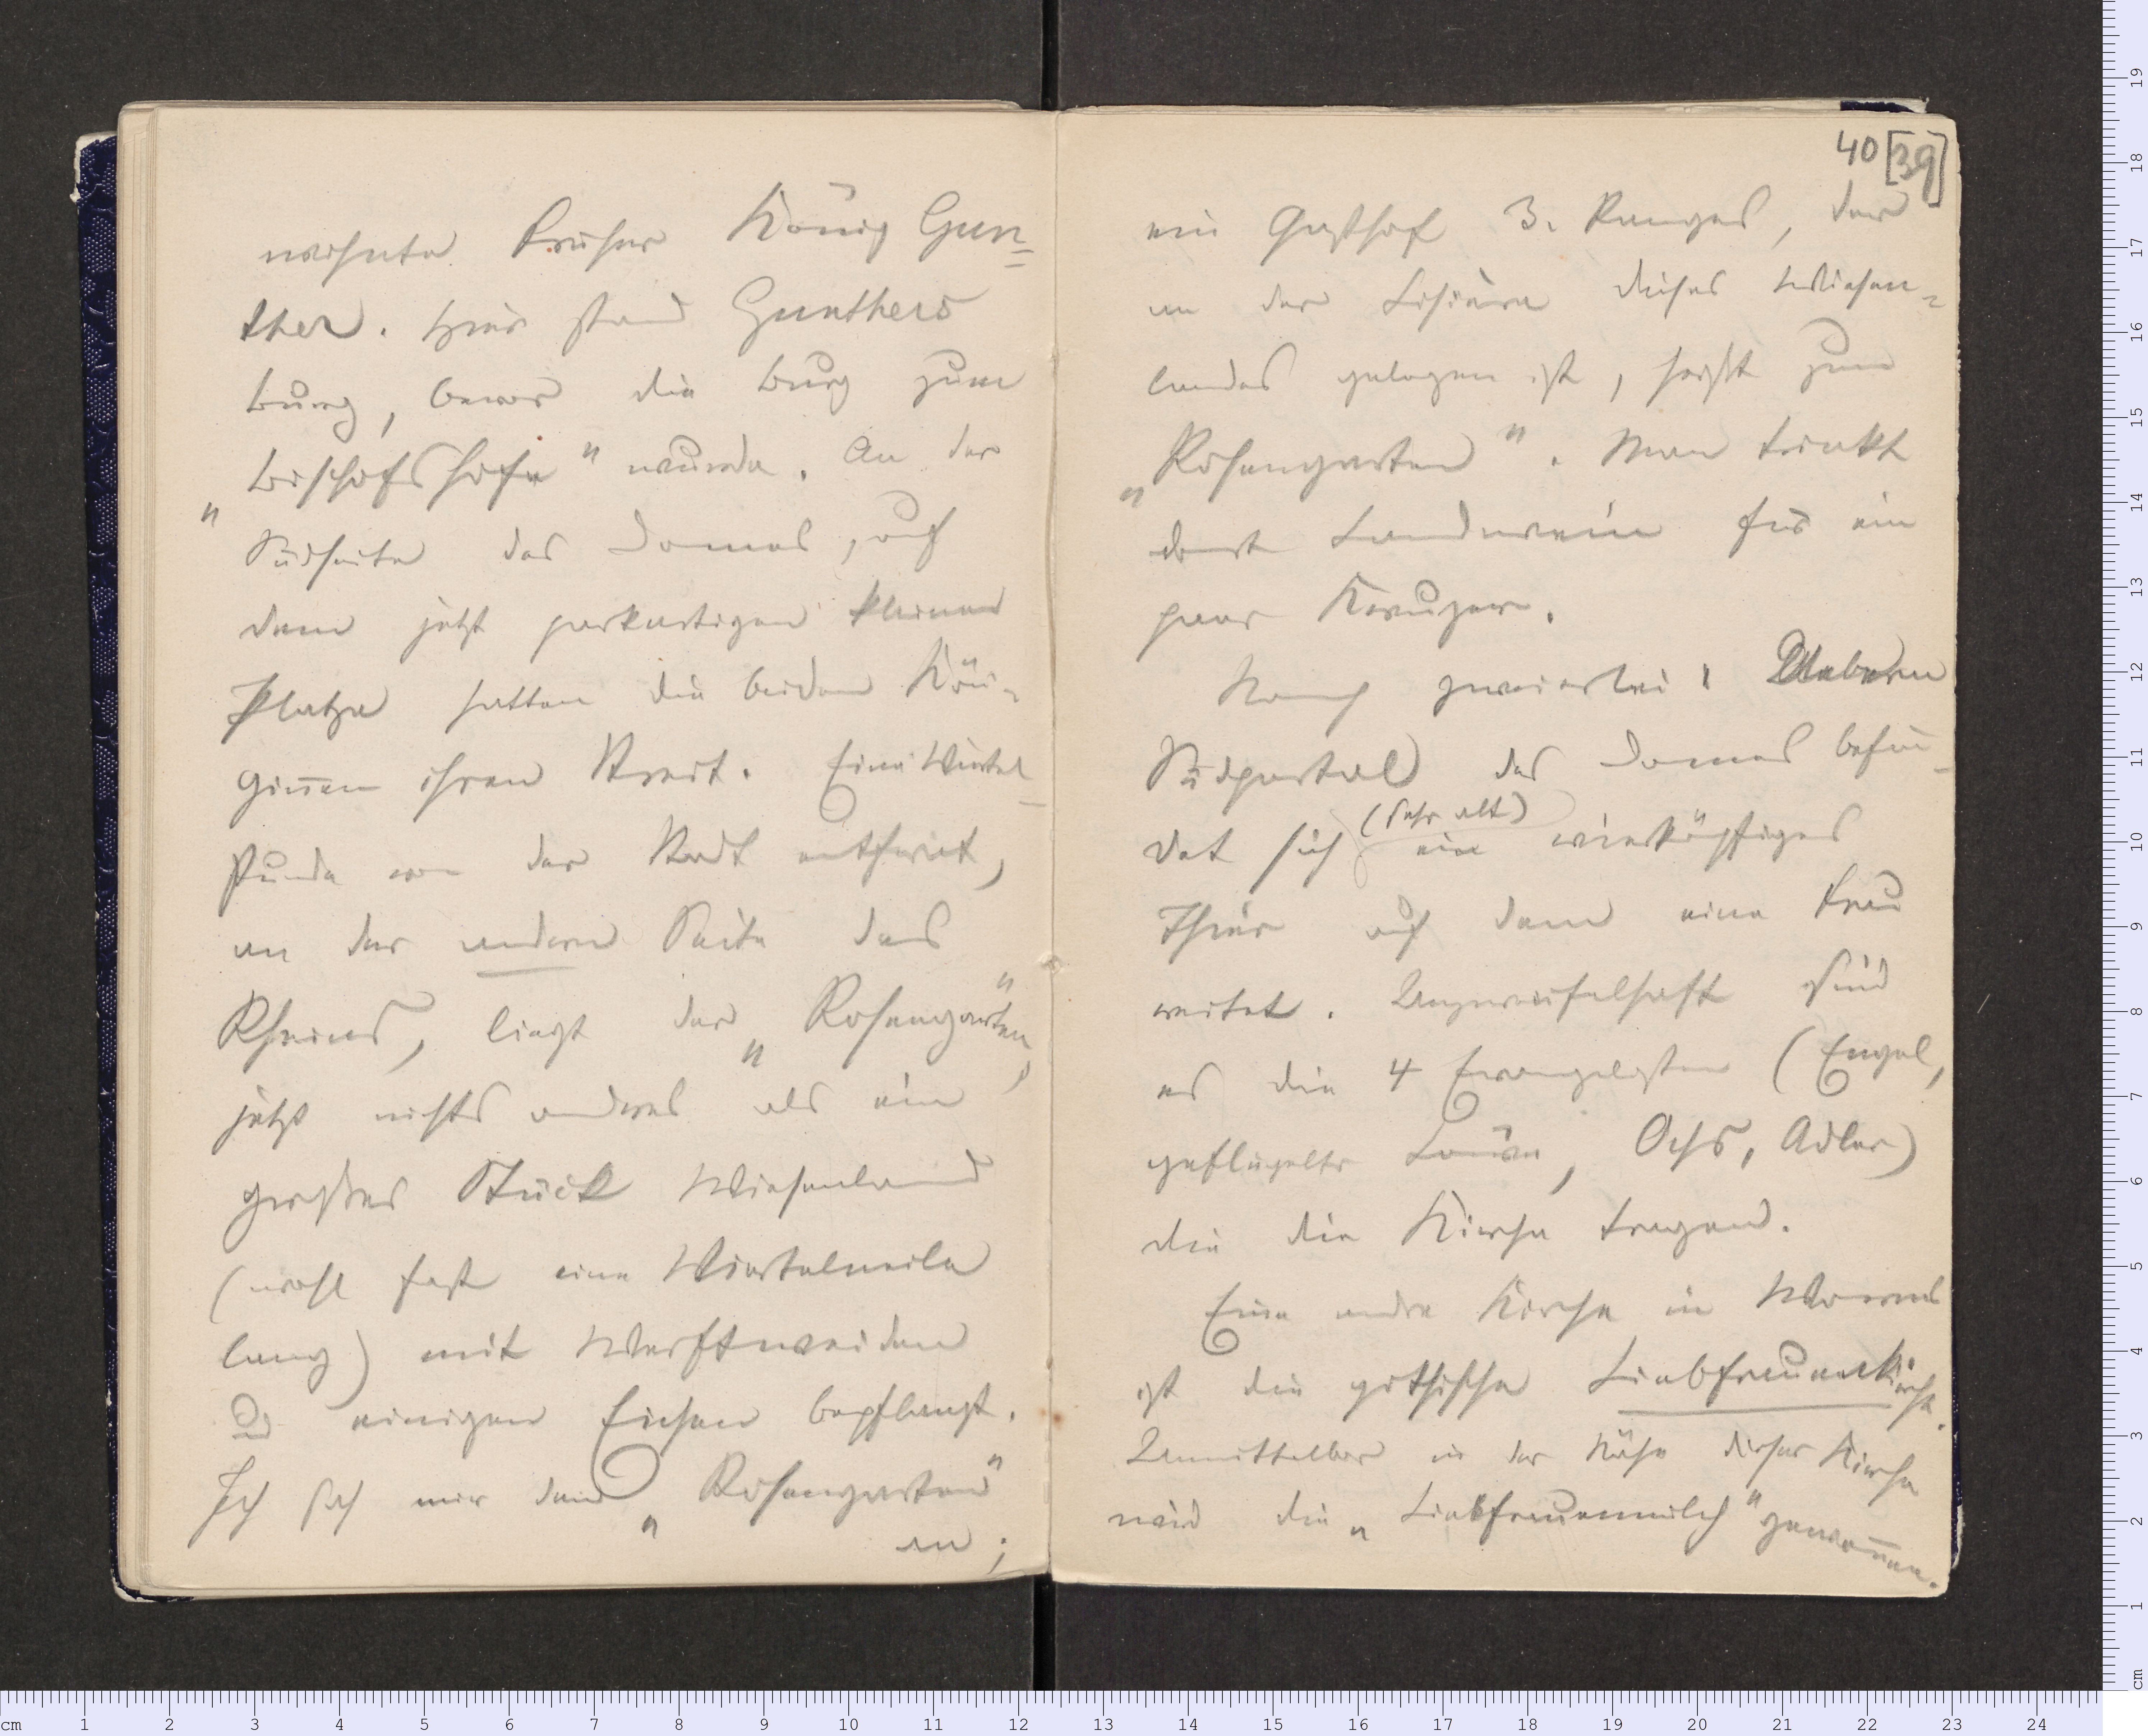 wohnte früher König Gun=
ther. Hier stand Gunthers
Burg, bevor die Burg zum
„Bischofshofe" wurde. An der
Südseite des Domes, auf
dem jetzt parkartigen kleinen
Platze hatten die beiden Köni-
gin̄en ihren Streit. Eine Viertel-
stunde von der Stadt entfernt,
an der andern Seite des
Rheines, liegt der „Rosengarten",
jetzt nichts andres als ein
großes Stück Wiesenland
(wohl fast eine Viertelmeile
lang) mit Werftweiden
u. einigen Eichen bepflanzt.
Ich sah mir den „Rosengarten"
an;
40 [39]
ein Gasthof 3. Ranges, der
an der Lisière dieses Wiesen-
landes gelegen ist, heißt zum
„Rosengarten". Man trinkt
dort Landwein für ein
paar Kreuzer.
Noch zweierlei: Ueberm
Südportal des Domes befin-
det sich (sehr alt) ein vierköpfiges
Thier auf dem eine Frau
reitet. Unzweifelhaft sind
es die 4 Evangelisten (Engel,
geflügelter Löwe, Ochs, Adler)
die die Kirche tragen.
Eine andre Kirche in Worms
ist die gothische Liebfrauenkirche.
Unmittelbar in der Nähe dieser Kirche
wird die „Liebfrauenmilch" gewon̄en.